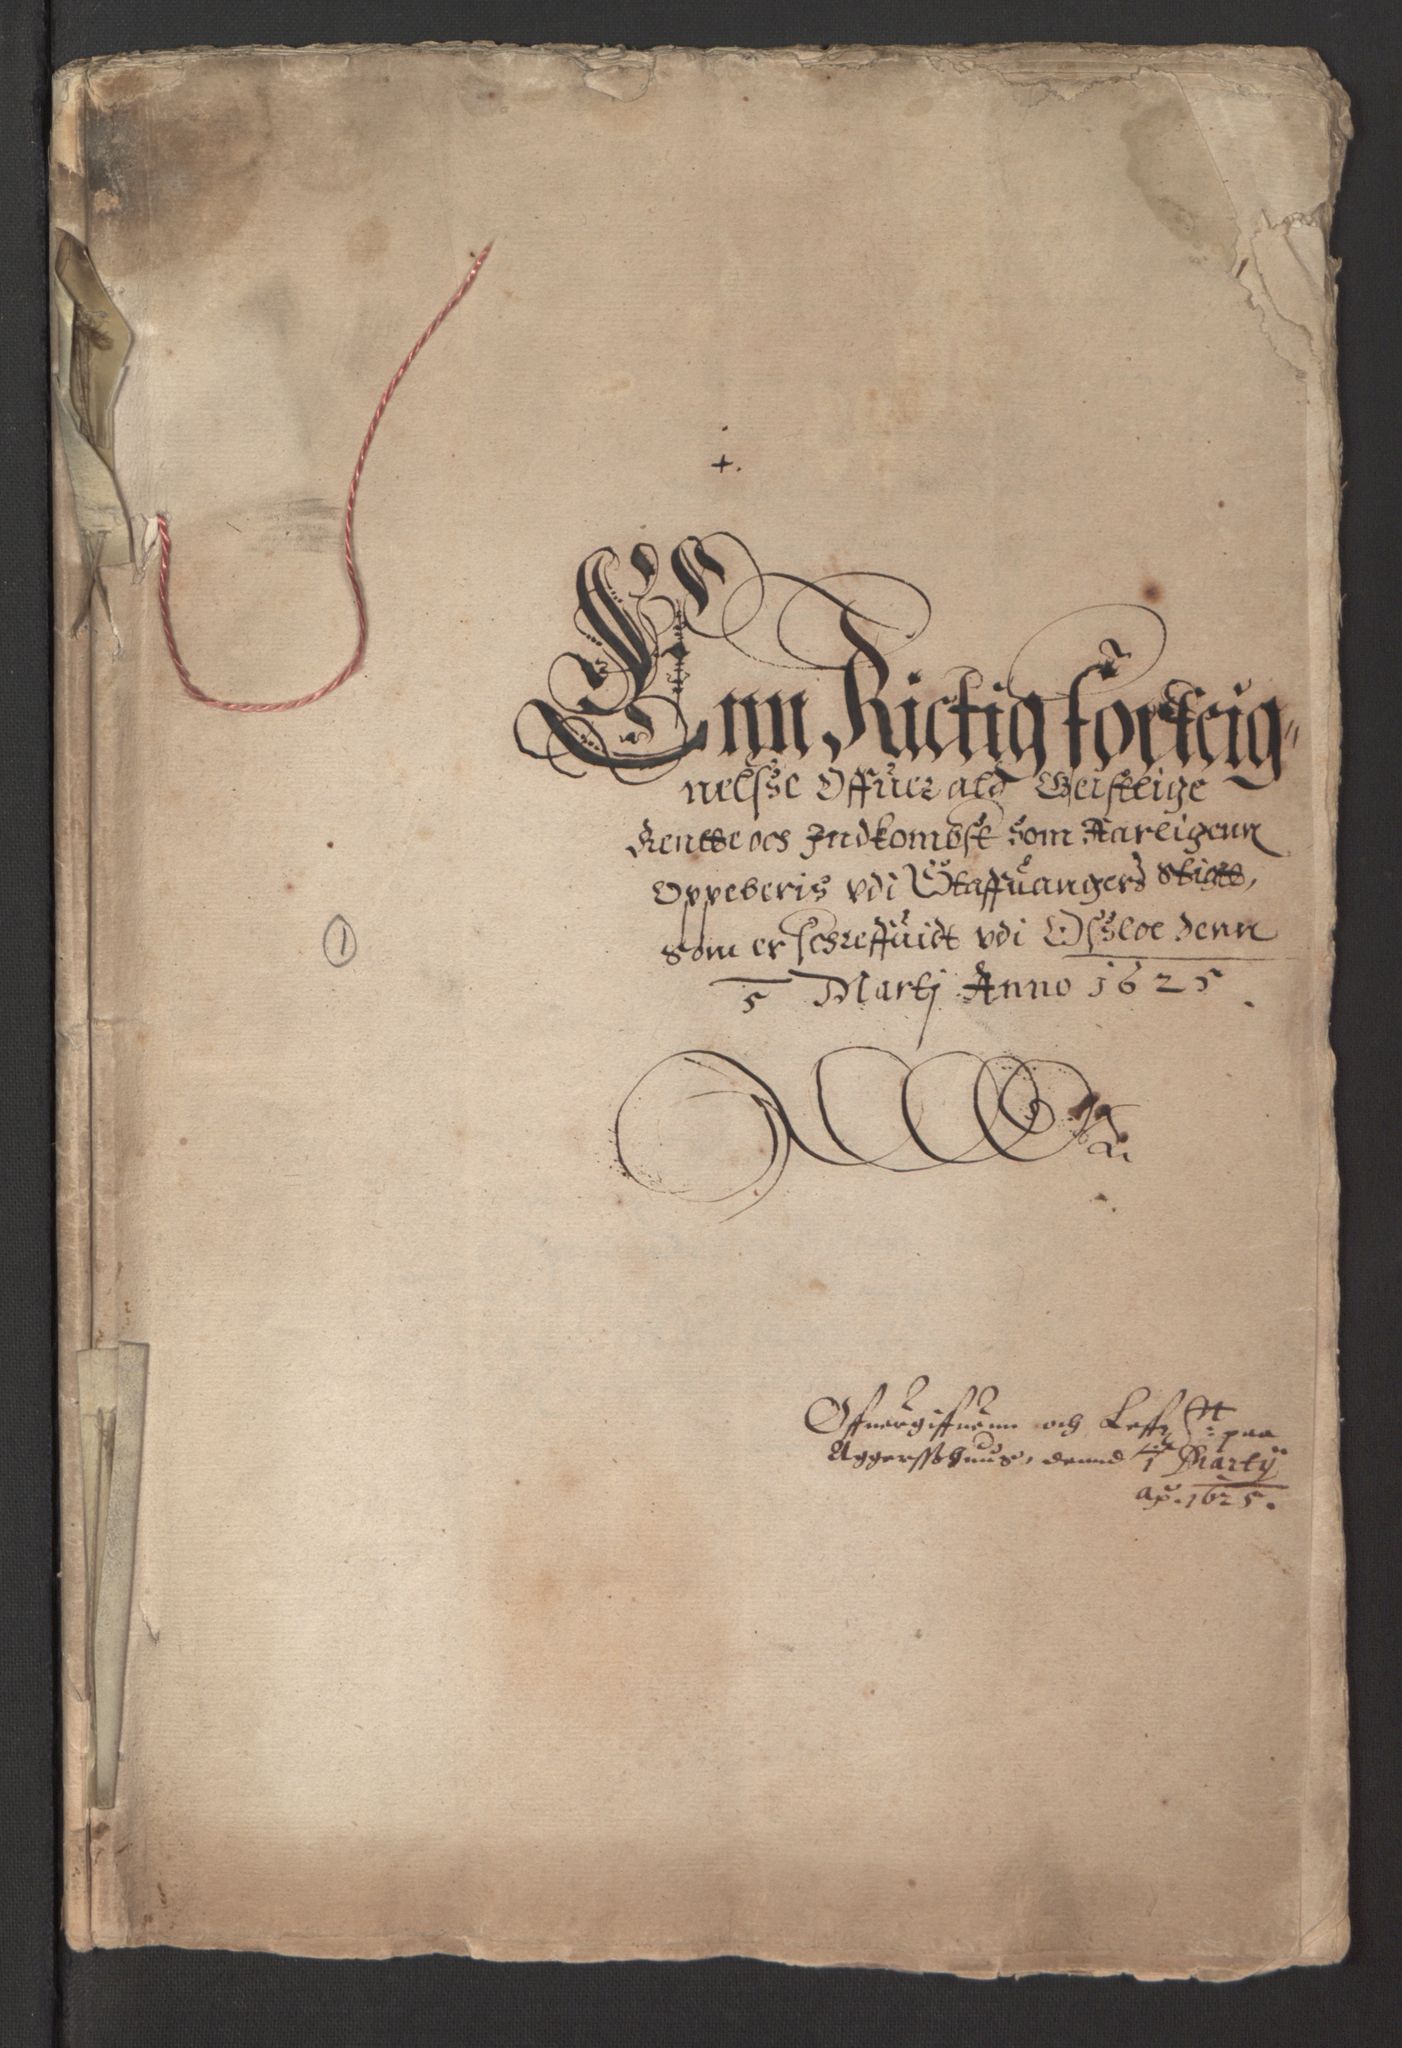 +.
Enn Rictig forteig=
nelsse Offuer ald Geistlige
Rentte och Indkombst som Aarligenn
Oppeberis vdi Staffuangers Stigtt,
som er schreffuidt vdi Opsloe denn
5 Martj Anno 1625.
1
Offuergiffuenn och paa
Aggersshuus, dennd Martij
ao. 1625.